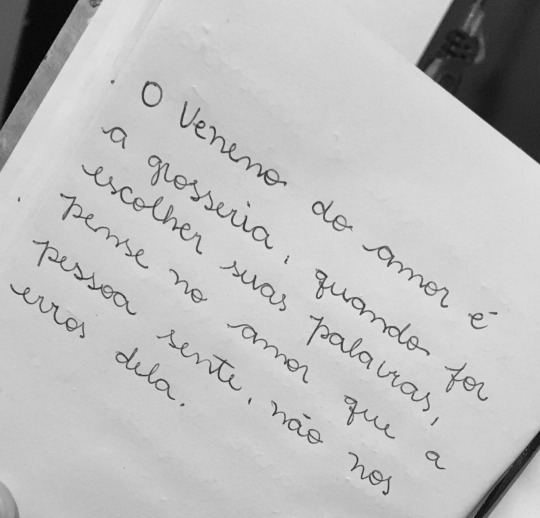 O Veneno do amor é
a grosseria, quando for
escolher suas palavras,
pense no amor que a
pessoa sente, não nos
erros dela.